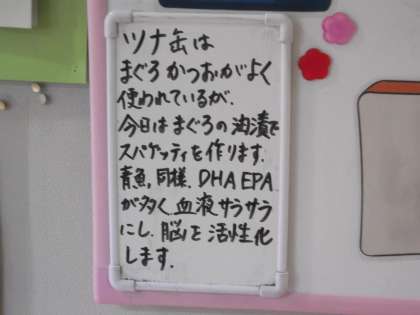 ツナ缶は
まぐろかつおがよく
使われているが、
今日はまぐろの油漬で
スパゲッティを作ります.
青魚,同様、DHA EPA
が多く血液サラサラ
にし、脳を活性化
します.